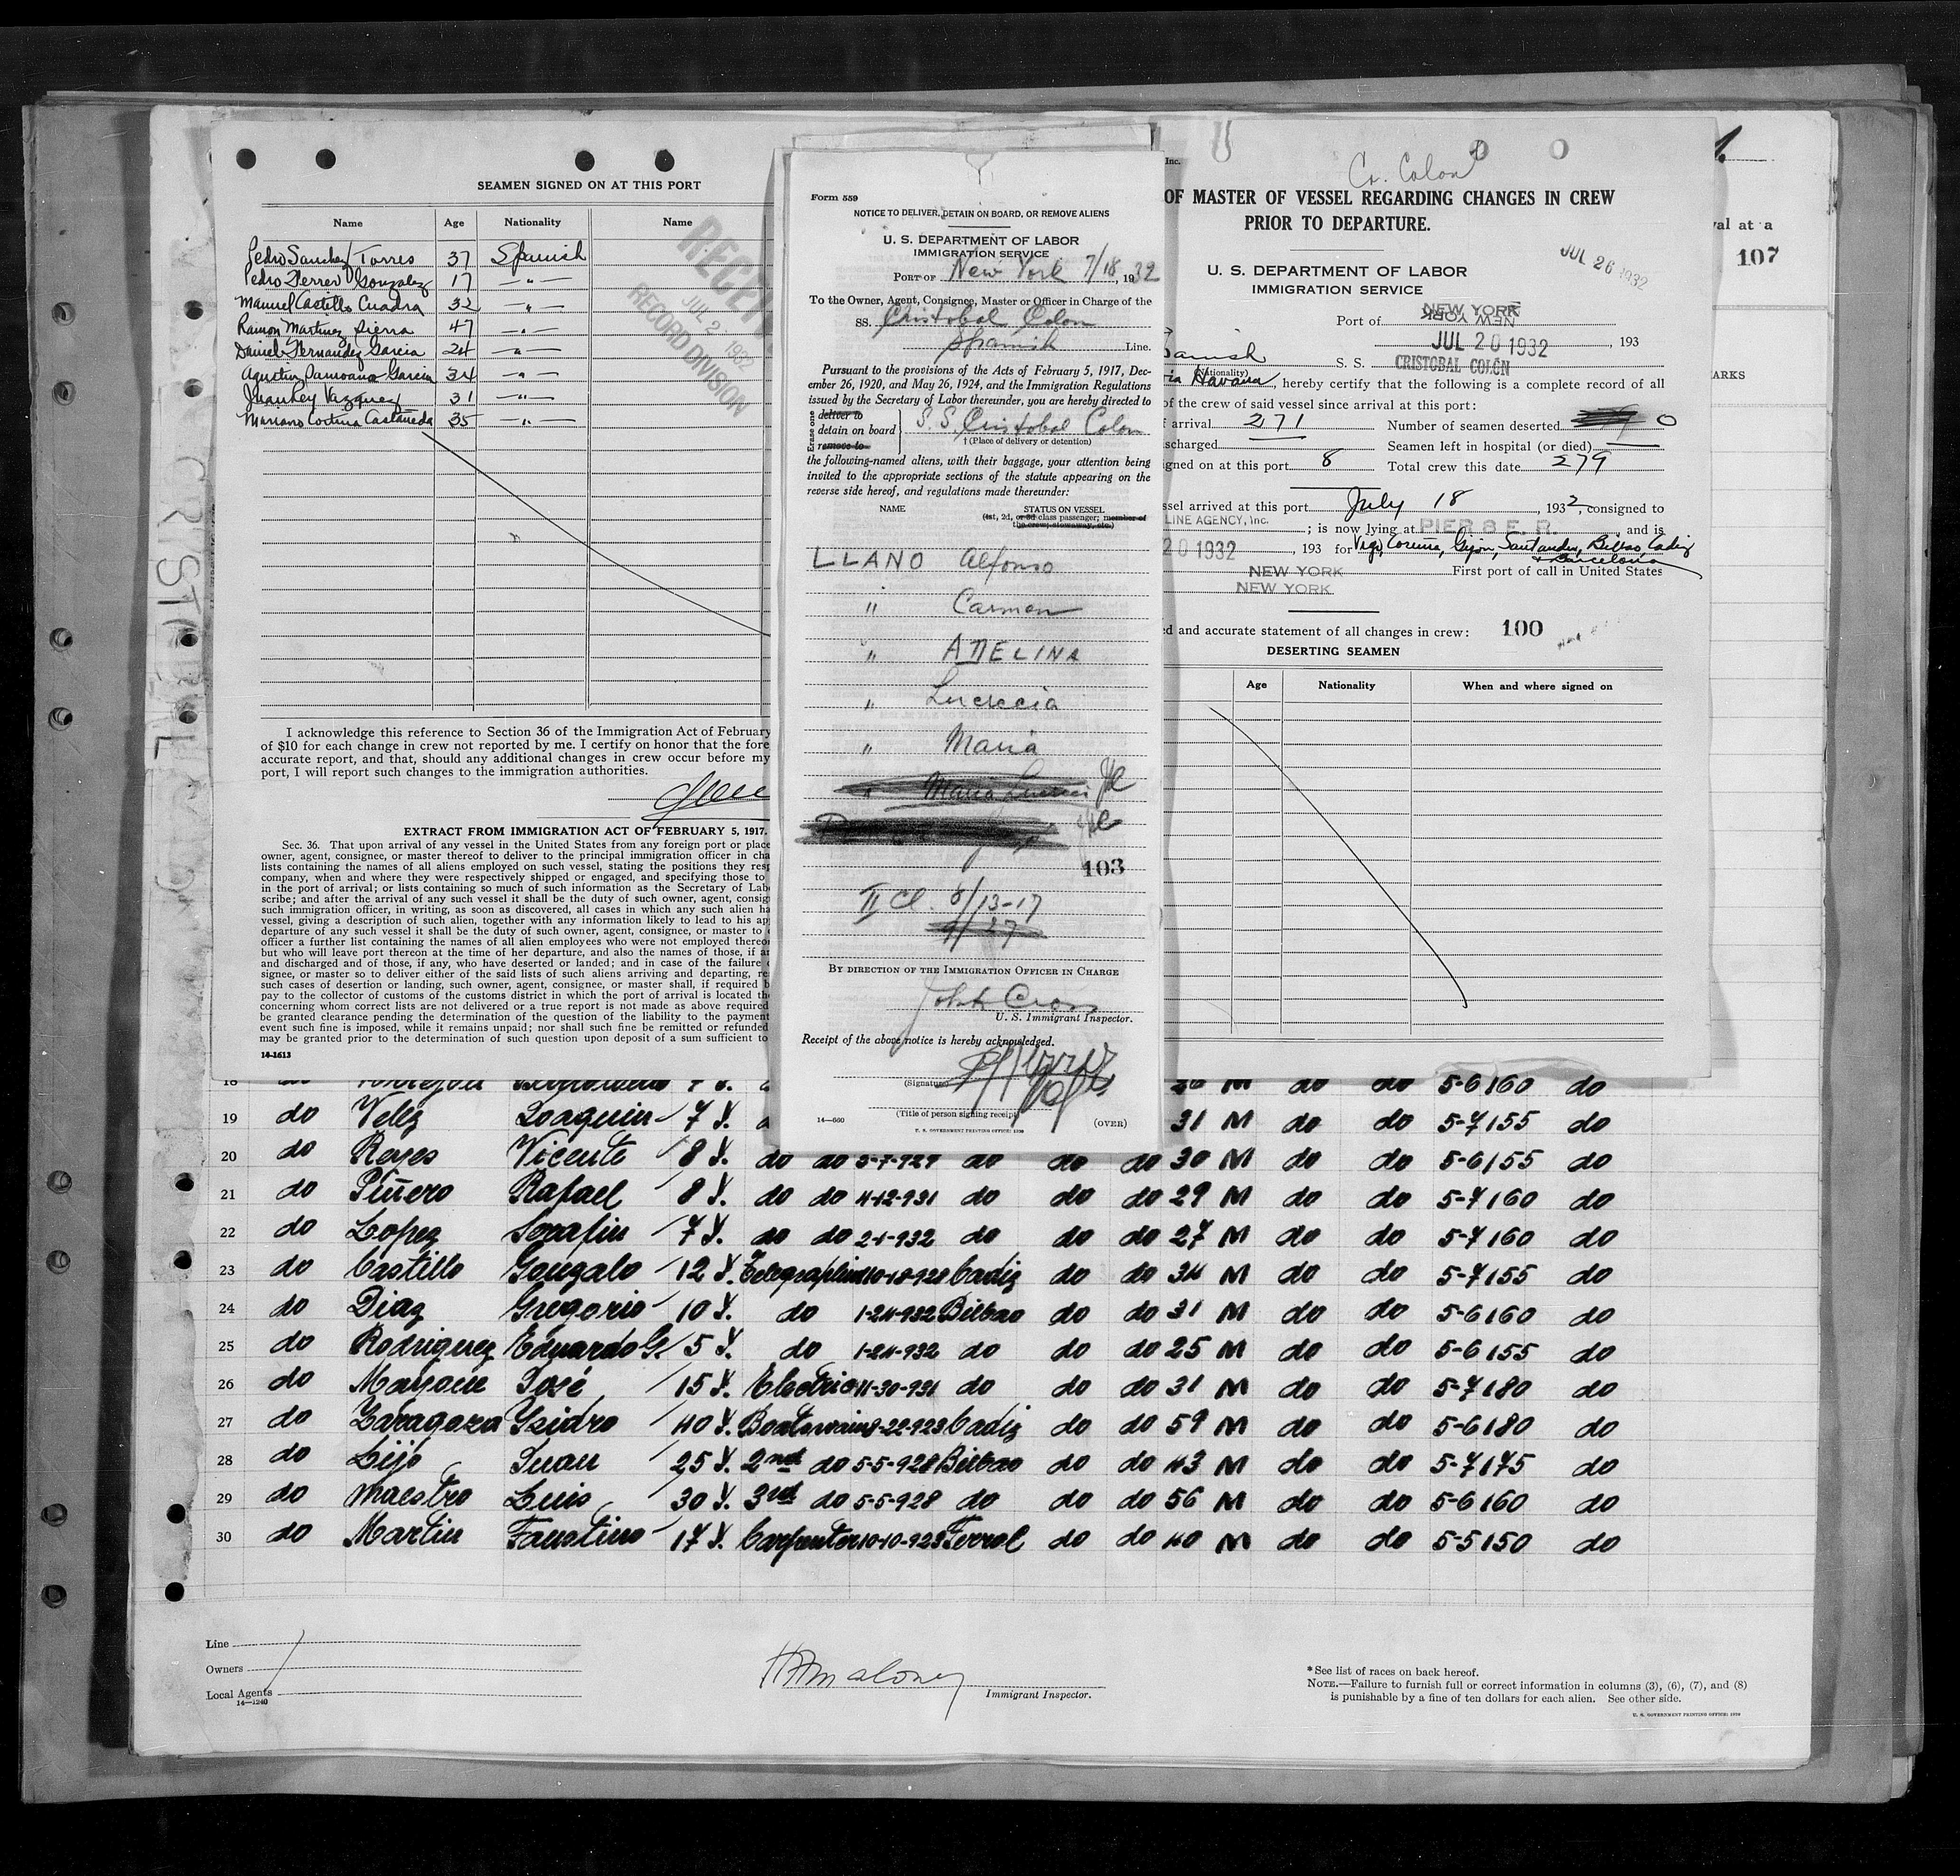 SEAMEN SIGNED ON AT THIS PORT
Name Age Nationality Name
Pedro Sanchez Torres 37 Spanish
Pedro Ferrer Gonzalez 17 — " —
Manuel Castillo Cuadra 32 "
Ramon Martinez Sierra 47 — " —
Daniel Fernandez Garcia 24 — " —
Agustin Garcia 34 — " —
Juan Rey Vazquez 31 — " —
Mariano Cortina Castañeda 35 — " —
JUL 2 1932
RECORD DIVISION
I acknowledge this reference to Section 36 of the Immigration Act of February
of $10 for each change in crew not reported by me. I certify on honor that the fore
accurate report, and that, should any additional changes in crew occur before my
port, I will report such changes to the immigration authorities.
EXTRACT FROM IMMIGRATION ACT OF FEBRUARY 5, 1917.
Sec. 36. That upon arrival of any vessel in the United States from any foreign port or place
owner, agent, consignee, or master thereof to deliver to the principal immigration officer in cha
lists containing the names of all aliens employed on such vessel, stating the positions they resp
company, when and where they were respectively shipped or engaged, and specifying those to
in the port of arrival; or lists containing so much of such information as the Secretary of Lab
scribe; and after the arrival of any such vessel it shall be the duty of such owner, agent, consig
such immigration officer, in writing, as soon as discovered, all cases in which any such alien ha
vessel, giving a description of such alien, together with any information likely to lead to his ap
departure of any such vessel it shall be the duty of such owner, agent, consignee, or master to
officer a further list containing the names of all alien employees who were not employed thereo
but who will leave port thereon at the time of her departure, and also the names of those, if a
and discharged and of those, if any, who have deserted or landed; and in case of the failure
signee, or master so to deliver either of the said lists of such aliens arriving and departing, re
such cases of desertion or landing, such owner, agent, consignee, or master shall, if required b
pay to the collector of customs of the customs district in which the port of arrival is located th
concerning whom correct lists are not delivered or a true report is not made as above required
be granted clearance pending the determination of the question of the liability to the payment
event such fine is imposed, while it remains unpaid; nor shall such fine be remitted or refunded
may be granted prior to the determination of such question upon deposit of a sum sufficient to
14-1613
Form 559
NOTICE TO DELIVER, DETAIN ON BOARD, OR REMOVE ALIENS
U. S. DEPARTMENT OF LABOR
IMMIGRATION SERVICE
PORT OF New York 7/18, 1932
To the Owner, Agent, Consignee, Master or Officer in Charge of the
SS. Cristobal Colon
Spanish Line.
Pursuant to the provisions of the Acts of February 5, 1917, Dec-
ember 26, 1920, and May 26, 1924, and the Immigration Regulations
issued by the Secretary of Labor thereunder, you are hereby directed to
Erase one
deliver to
detain on board S.S. Cristobal Colon
remove to †(Place of delivery or detention)
the following-named aliens, with their baggage, your attention being
invited to the appropriate sections of the statute appearing on the
reverse side hereof, and regulations made thereunder:
NAME STATUS ON VESSEL
(1st, 2d, or 3d class passenger; member of
the crew; stowaway, etc.)
LLANO Alfonso
" Carmen
" ADELINA
" Lucrecia
" Maria
" Maria
103
II Cl. 6/13-17
9/27
BY DIRECTION OF THE IMMIGRATION OFFICER IN CHARGE
U. S. Immigrant Inspector.
Receipt of the above notice is hereby acknowledged.
(Signature
(Title of person signing receipt)
14—660 (OVER)
U. S. GOVERNMENT PRINTING OFFICE: 1930
Inc.
Cr. Colon
OF MASTER OF VESSEL REGARDING CHANGES IN CREW
PRIOR TO DEPARTURE.
JUL 26 1932
U. S. DEPARTMENT OF LABOR
IMMIGRATION SERVICE
NEW YORK
Port of NEW YORK
JUL 20 1932, 193
S. S. CRISTOBAL COLÓN
(Nationality)
via Havana, hereby certify that the following is a complete record of all
of the crew of said vessel since arrival at this port:
arrival 271 Number of seamen deserted 0
scharged Seamen left in hospital (or died)
igned on at this port 8 Total crew this date 279
ssel arrived at this port July 18, 1932, consigned to
LINE AGENCY, Inc.; is now lying at PIER 8 E. R. and is
20 1932, 193 for Vigo, Coruña, Gijon, Santander, Bilbao, Cadiz
& Barcelona
NEW YORK First port of call in United States
NEW YORK
ed and accurate statement of all changes in crew: 100
DESERTING SEAMEN
Age Nationality When and where signed on
1.
val at a
107
ARKS
CRISTOBAL
18 5-6 160 do
19 do Velez Joaquin 7 Y. 31 M do do 5-7 155 do
20 do Reyes Vicente 8 Y. do do 5-7-929 do do do 30 M do do 5-6 155 do
21 do Piñero Rafael 8 Y. do do 4-12-931 do do do 29 M do do 5-7 160 do
22 do Lopez Serafin 7 Y. do do 2-1-932 do do do 27 M do do 5-7 160 do
23 do Castillo Gonzalo 12 Y. 10-18-928 Cadiz do do 34 M do do 5-7 155 do
24 do Diaz Gregorio 10 Y. do 1-24-932 Bilbao do do 31 M do do 5-6 160 do
25 do Rodriguez Eduardo G. 5 Y. do 1-24-932 do do do 25 M do do 5-6 155 do
26 do José 15 Y. Electric 11-30-931 do do do 31 M do do 5-7 180 do
27 do Zaragoza Isidro 40 Y. Boatswain 8-22-923 Cadiz do do 59 M do do 5-6 180 do
28 do Lijo Juan 25 Y. 2nd do 5-5-928 Bilbao do do 43 M do do 5-7 175 do
29 do Maestro Luis 30 Y. 3rd do 5-5-928 do do do 56 M do do 5-6 160 do
30 do Martin Faustino 17 Y. Carpenter 10-10-923 Ferrol do do 40 M do do 5-5 150 do
Line
Owners
Local Agents
14—1240
Maloney
Immigrant Inspector.
*See list of races on back hereof.
NOTE.—Failure to furnish full or correct information in columns (3), (6), (7), and (8)
is punishable by a fine of ten dollars for each alien. See other side.
U. S. GOVERNMENT PRINTING OFFICE: 1930